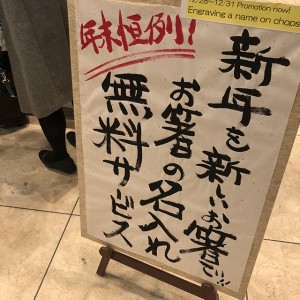 12/26~12/31 Promotion now!
Engraving a name on chops
年末恒例!!
新年を新しいお箸で!!
お箸の名入れ
無料サービス